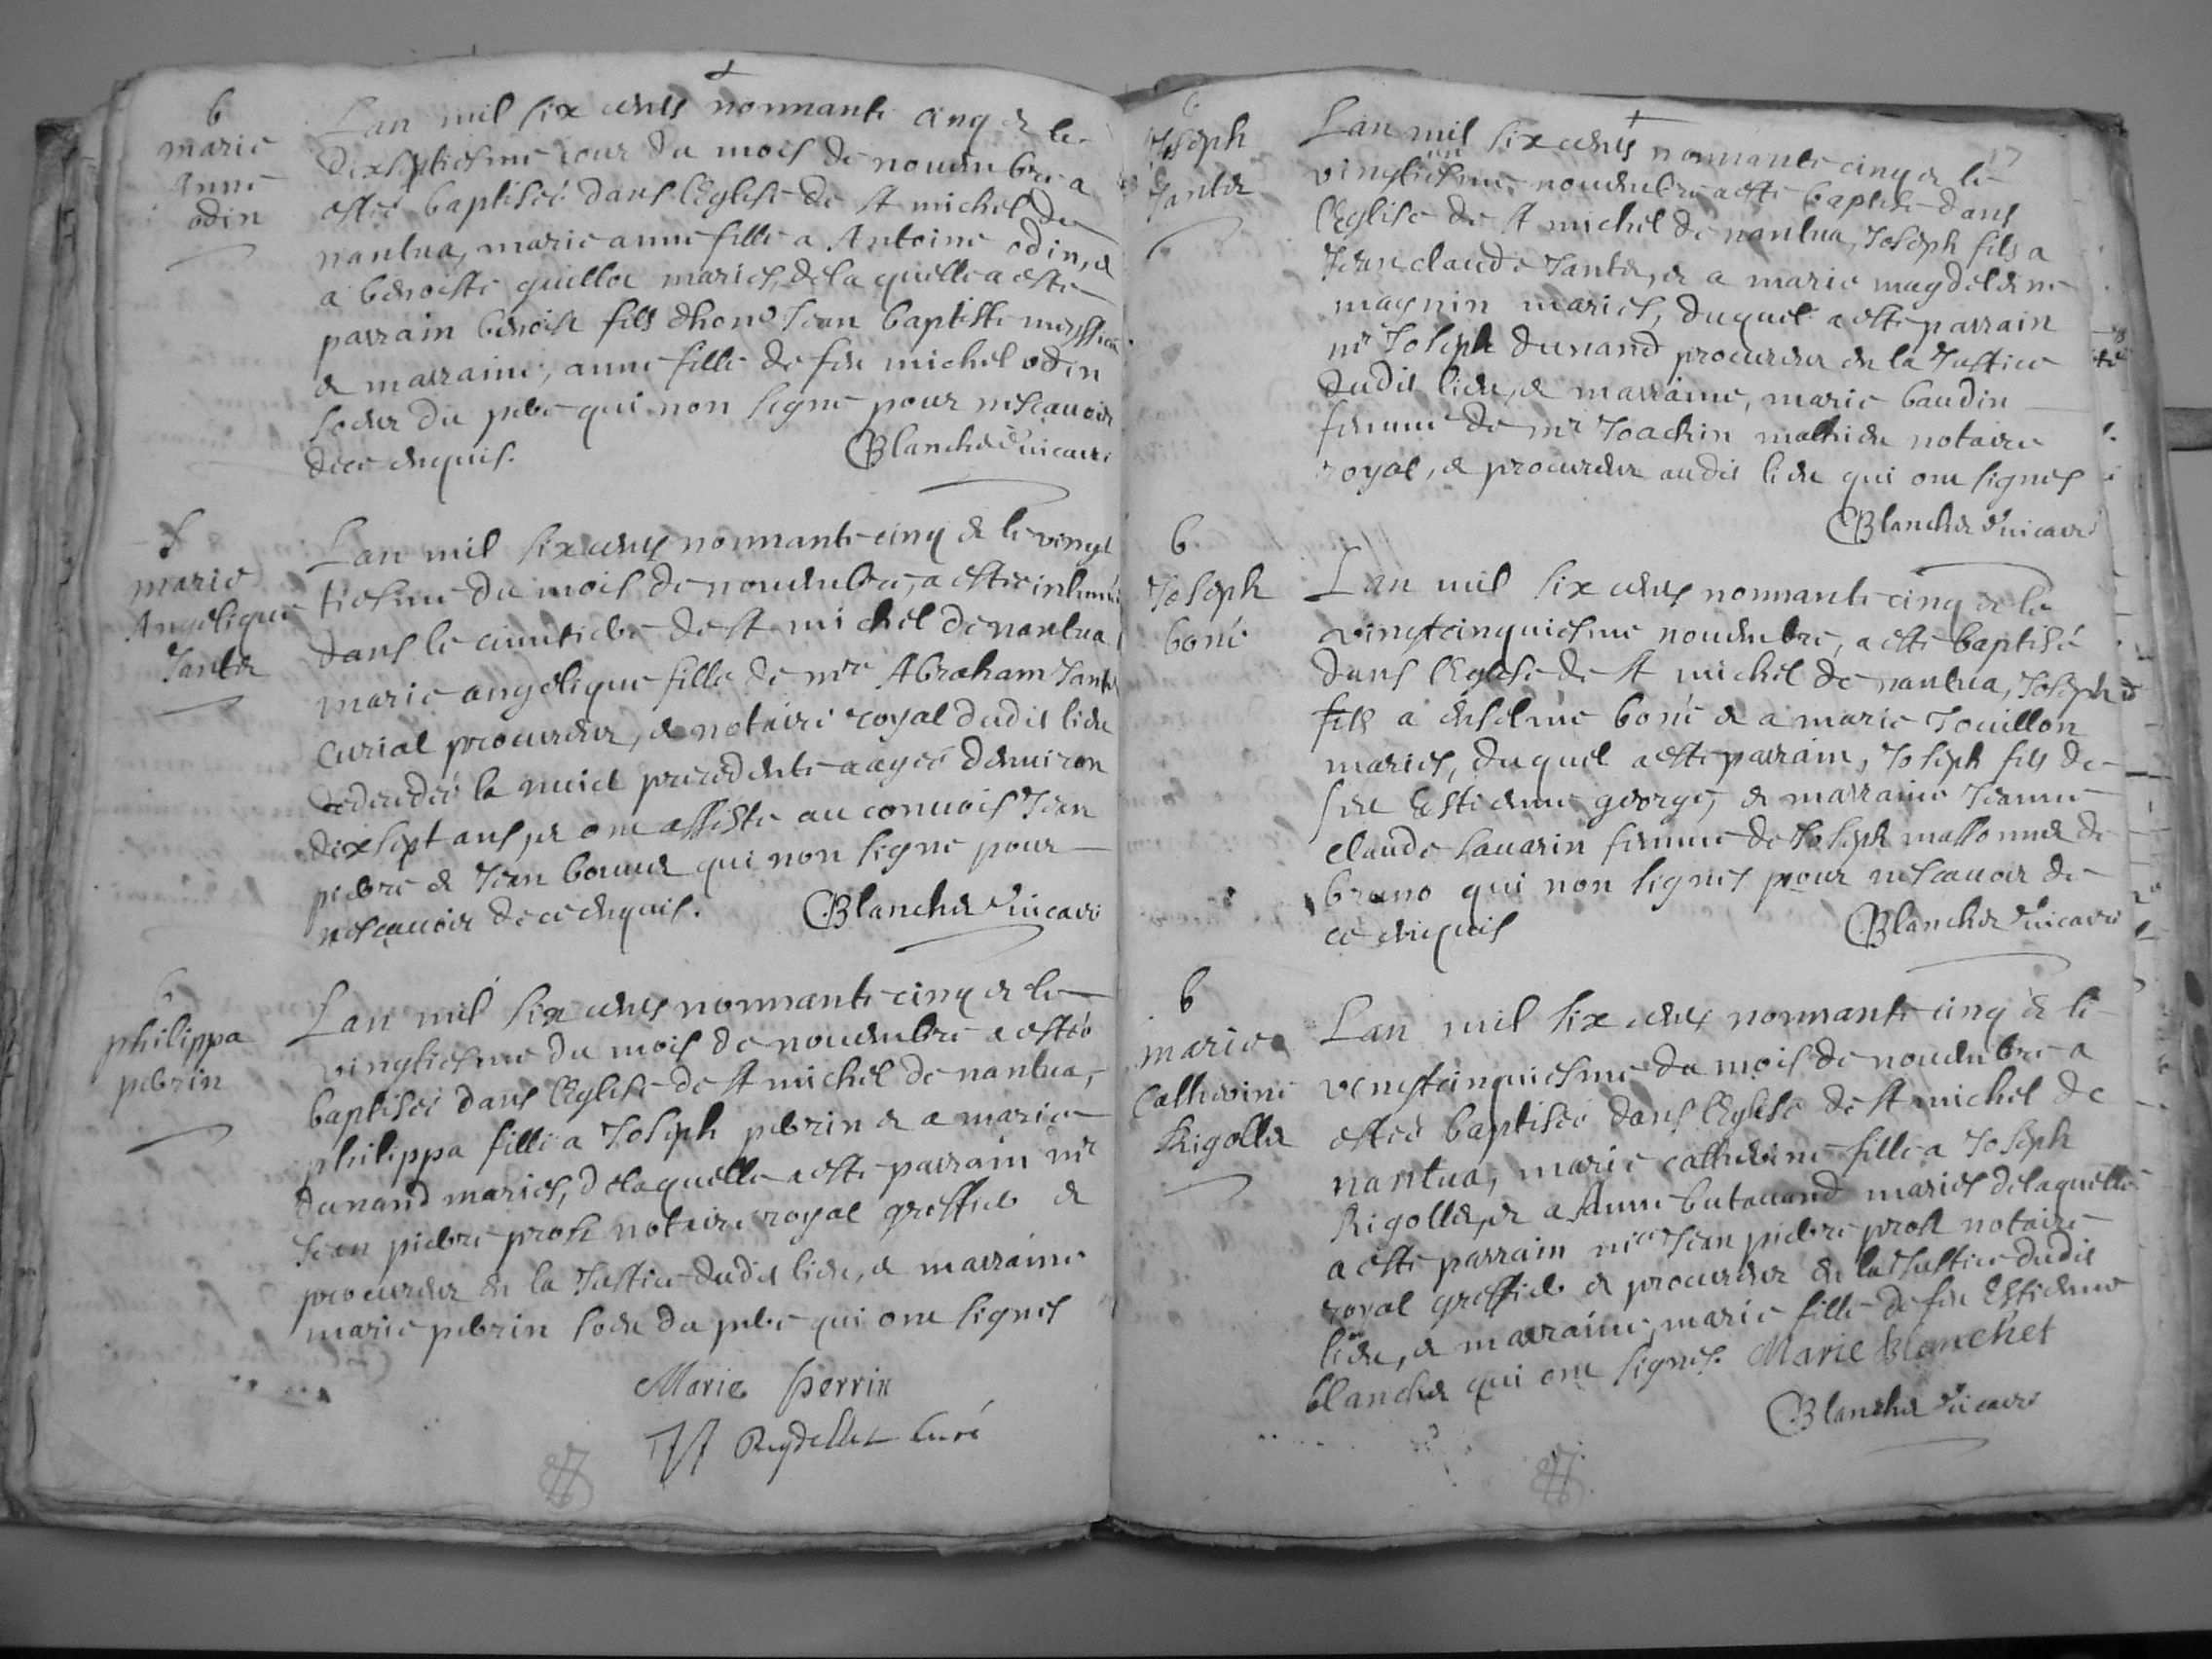 b
marie
Anne
odin
Lan mil six cents nonnante cinq & le
dixseptiesme iour du mois de nouembre a
estée baptisée dans leglise de st michel de
nantua, marie anne fille a Antoine odin, &
a benoiste guillot maries, de la quelle a esté
parrain benoist fils dhono Jean baptiste
& marraine, anne fille de feu michel odin
soeur du pere qui non signé pour ne scauoir
dece enquis. Blanchet vicaire
S
marie
Angelique
Jantet
Lan mil six cents nonnante cinq & le vingt
tiesme du mois de nouembre, a estée inhumée
dans le cimetiere de st michel de nantua
marie angelique fille de mre Abraham Jantet
curial procureur, & notaire royal dudit lieu
decedée la nuict precedente aagée denuiron
dix sept ans, & ont assisté au conuois Jean
pierre & Jean bonnet qui non signé pour
nescauoir de ce enquis. Blanchet vicaire
b
philippa
perrin
Lan mil six cents nonnante cinq & le
vingtiesme du mois de nouembre a estée
baptisée dans leglise de st michel de nantua,
philippa fille a Joseph perrin & a marie
dunand maries, de laquelle a esté parrain mre
Jean pierre prost notaire royal greffier &
procureur en la Justice dudit lieu, & marraine
marie perrin soeur du pere qui ont signés
Marie Perrin
Reydellet curé
b
Joseph
Jantet
17
Lan mil six cents nonnante cinq & le
vingtiesme nouembre a esté baptisé dans
leglise de st michel de nantua, Joseph fils a
Jean claude Jantet, & a marie magdeleine
magnin maries, duquel a esté parrain
mr Joseph dunand procureur en la Justice
dudit lieu, & marraine, marie baudin
femme de mr Joachin mathieu notaire
royal, & procureur audit lieu qui ont signés
Blanchet vicaire
b
Joseph
boné
Lan mil six cents nonnante cinq & le
vingtcinquiesme nouembre, a esté baptisé
dans leglise de st michel de nantua, Joseph
fils a boné & a marie Jouillon
maries, duquel a esté parrain, Joseph fils de
feu Estienne george, & marraine Jeanne
claude sauarin femme de Joseph massonnet de
brano qui non signés pour nescauoir de
ce enquis Blanchet vicaire
b
marie
Catherine
Rigollet
Lan mil six cents nonnante cinq & le
vingtcinquiesme du mois de nouembre a
estée baptisée dans leglise de st michel de
nantua, marie catherine fille a Joseph
Rigollet, & a Anne butauand maries delaquelle
a esté parrain mre Jean pierre prost notaire
royal greffier & procureur en la Justice dudit
lieu, & marraine, marie fille de feu Estienne
blanchet qui ont signés. Marie Blanchet
Blanchet vicaire